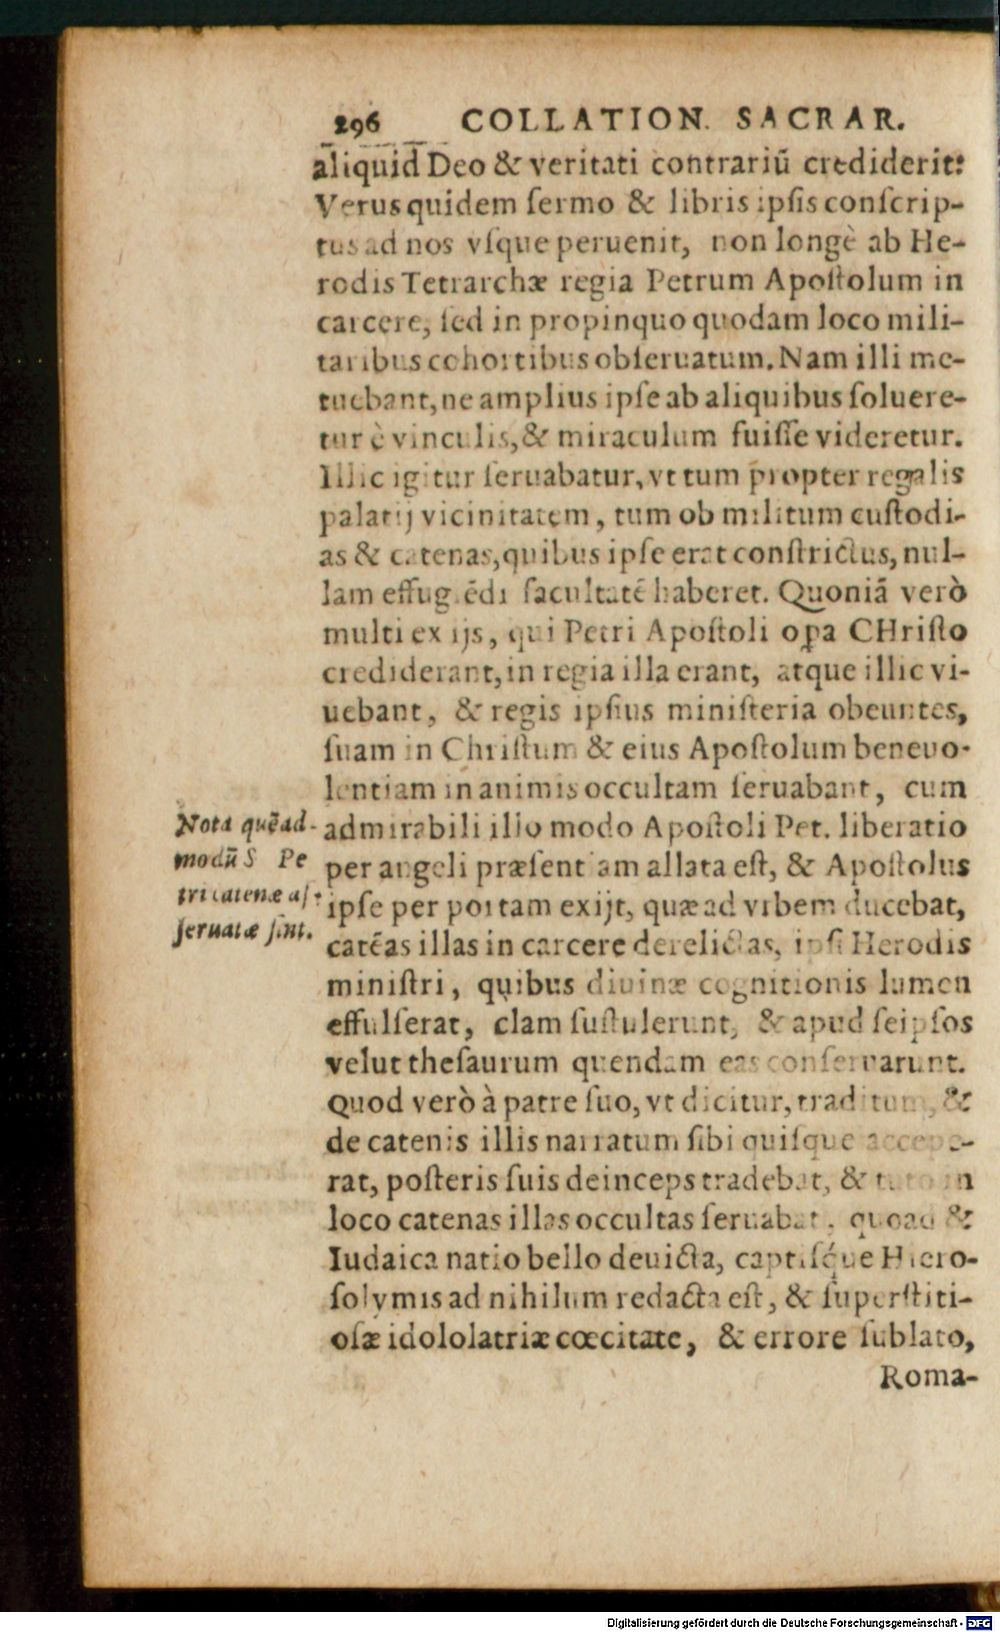 296 COLLATION. SACRAR.
aliquid Deo & veritati contrariū crediderit:
Verus quidem ſermo & libris ipſis conſcrip-
tus ad nos vſque peruenit, non longè ab He-
rodis Tetrarchæ regia Petrum Apoſtolum in
carcere, ſed in propinquo quodam loco mili-
taribus cohortibus obſeruatum. Nam illi me-
tuebant, ne amplius ipſe ab aliquibus ſoluere-
tur è vinculis, & miraculum fuiſſe videretur.
Illic igitur ſeruabatur, vt tum propter regalis
palatij vicinitatem, tum ob militum cuſtodi-
as & catenas, quibus ipſe erat conſtrictus, nul-
lam effugiēdi facultatē haberet. Quoniā verò
multi ex ijs, qui Petri Apoſtoli oꝑa CHriſto
crediderant, in regia illa erant, atque illic vi-
uebant, & regis ipſius miniſteria obeuntes,
ſuam in Chriſtum & eius Apoſtolum beneuo-
lentiam in animis occultam ſeruabant, cum
Nota quēad-
modū S Pe
tri catenæ aſ-
ſeruatæ ſint.
admirabili illo modo Apoſtoli Pet. liberatio
per angeli præſentiam allata eſt, & Apoſtolus
ipſe per portam exijt, quæ ad vrbem ducebat,
catēas illas in carcere derelictas, ipſi Herodis
miniſtri, quibus diuinæ cognitionis lumen
effulſerat, clam ſuſtulerunt, & apud ſeipſos
velut theſaurum quendam eas conſeruarunt.
Quod verò à patre ſuo, vt dicitur, traditum, &
de catenis illis narratum ſibi quiſque accepe-
rat, poſteris ſuis deinceps tradebat, & tuto in
loco catenas illas occultas ſeruabat, quoad &
Iudaica natio bello deuicta, captiſq́ue Hiero-
ſolymis ad nihilum redacta eſt, & ſuperſtiti-
oſæ idololatriæ cœcitate, & errore ſublato,
Roma-
Digitalisierung gefördert durch die Deutsche Forschungsgemeinschaft - DFG